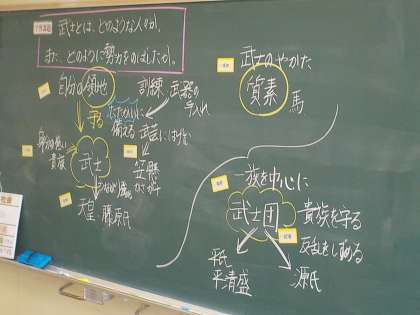 武士とは、どのような人々か。
また、どのように勢力をのばしたか。
自分の領地
守る
訓練
武器の手入れ
たたかいに
備える
武芸にはげむ
貴族
武士
天皇 藤原氏
武士のやかた
質素
馬
一族を中心に
武士団
貴族を守る
反乱をしずめる
平氏
平清盛
源氏